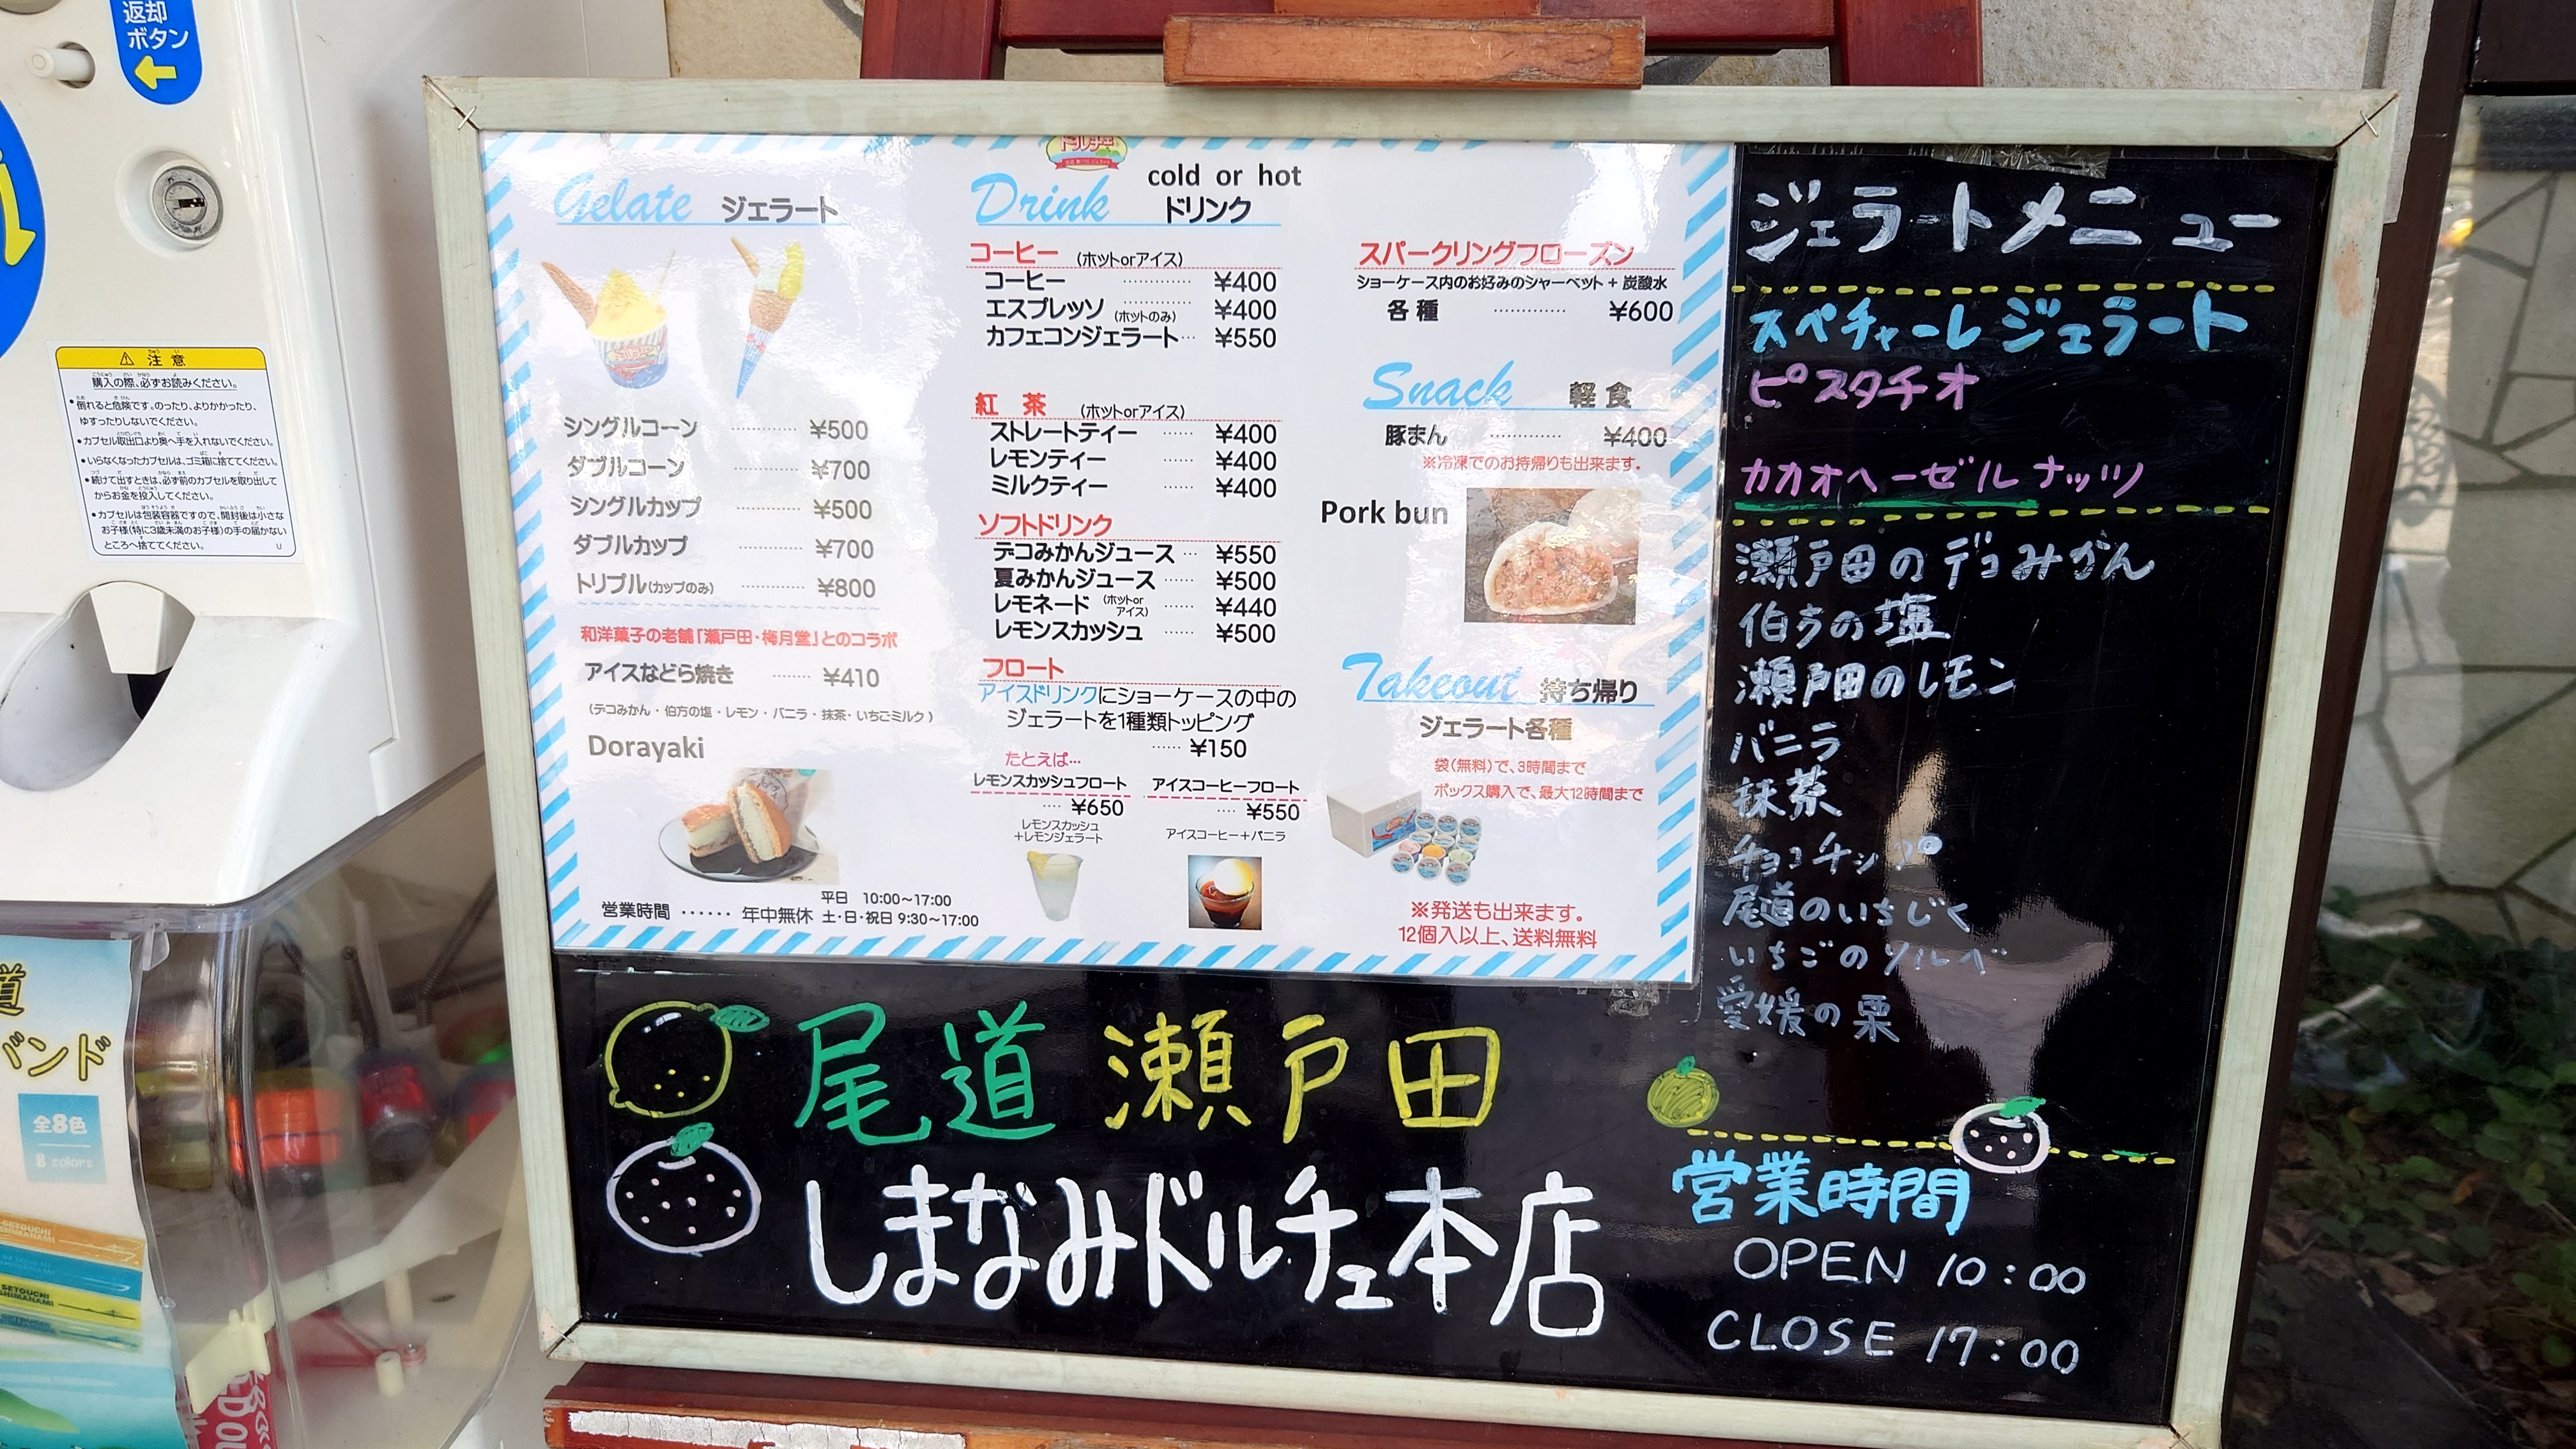 返却
ボタン
注意
購入の際、必ずお読みください。
●倒れると危険です。のったり、よりかかったり、
ゆすったりしないでください。
●カプセル取出口より奥へ手を入れないでください。
●いらなくなったカプセルは、ゴミ箱に捨ててください。
●続けて出すときは、必ず前のカプセルを取り出して
からお金を投入してください。
●カプセルは包装容器ですので、開封後は小さな
お子様(特に3歳未満のお子様)の手の届かない
ところへ捨ててください。
U
道
バンド
全8色
8 colors
SETOUCHI
SHIMANAMI
SETOUCHI
SHIMANAMI
Gelate ジェラート
シングルコーン ………… ¥500
ダブルコーン ………… ¥700
シングルカップ ………… ¥500
ダブルカップ ………… ¥700
トリプル(カップのみ) ………… ¥800
和洋菓子の老舗「瀬戸田・梅月堂」とのコラボ
アイスなどら焼き ……… ¥410
(デコみかん・伯方の塩・レモン・バニラ・抹茶・いちごミルク)
Dorayaki
営業時間 …… 年中無休 平日 10:00～17:00
土・日・祝日 9:30～17:00
ドルチェ
Drink cold or hot
ドリンク
コーヒー (ホットorアイス)
コーヒー ………… ¥400
エスプレッソ (ホットのみ) ………… ¥400
カフェコンジェラート… ¥550
紅茶 (ホットorアイス)
ストレートティー …… ¥400
レモンティー …… ¥400
ミルクティー …… ¥400
ソフトドリンク
デコみかんジュース … ¥550
夏みかんジュース …… ¥500
レモネード (ホットorアイス) …… ¥440
レモンスカッシュ …… ¥500
フロート
アイスドリンクにショーケースの中の
ジェラートを1種類トッピング
…… ¥150
たとえば…
レモンスカッシュフロート
…. ¥650
レモンスカッシュ
+レモンジェラート
アイスコーヒーフロート
…. ¥550
アイスコーヒー+バニラ
スパークリングフローズン
ショーケース内のお好みのシャーベット + 炭酸水
各種 ………… ¥600
Snack 軽食
豚まん ………… ¥400
※冷凍でのお持帰りも出来ます。
Pork bun
Takeout 持ち帰り
ジェラート各種
袋(無料)で、3時間まで
ボックス購入で、最大12時間まで
※発送も出来ます。
12個入以上、送料無料
ジェラートメニュー
スペチャーレ ジェラート
ピスタチオ
カカオヘーゼルナッツ
瀬戸田のデコみかん
伯方の塩
瀬戸田のレモン
バニラ
抹茶
チョコチップ
尾道のいちじく
いちごのソルベ
愛媛の栗
尾道 瀬戸田
しまなみドルチェ本店
営業時間
OPEN 10:00
CLOSE 17:00